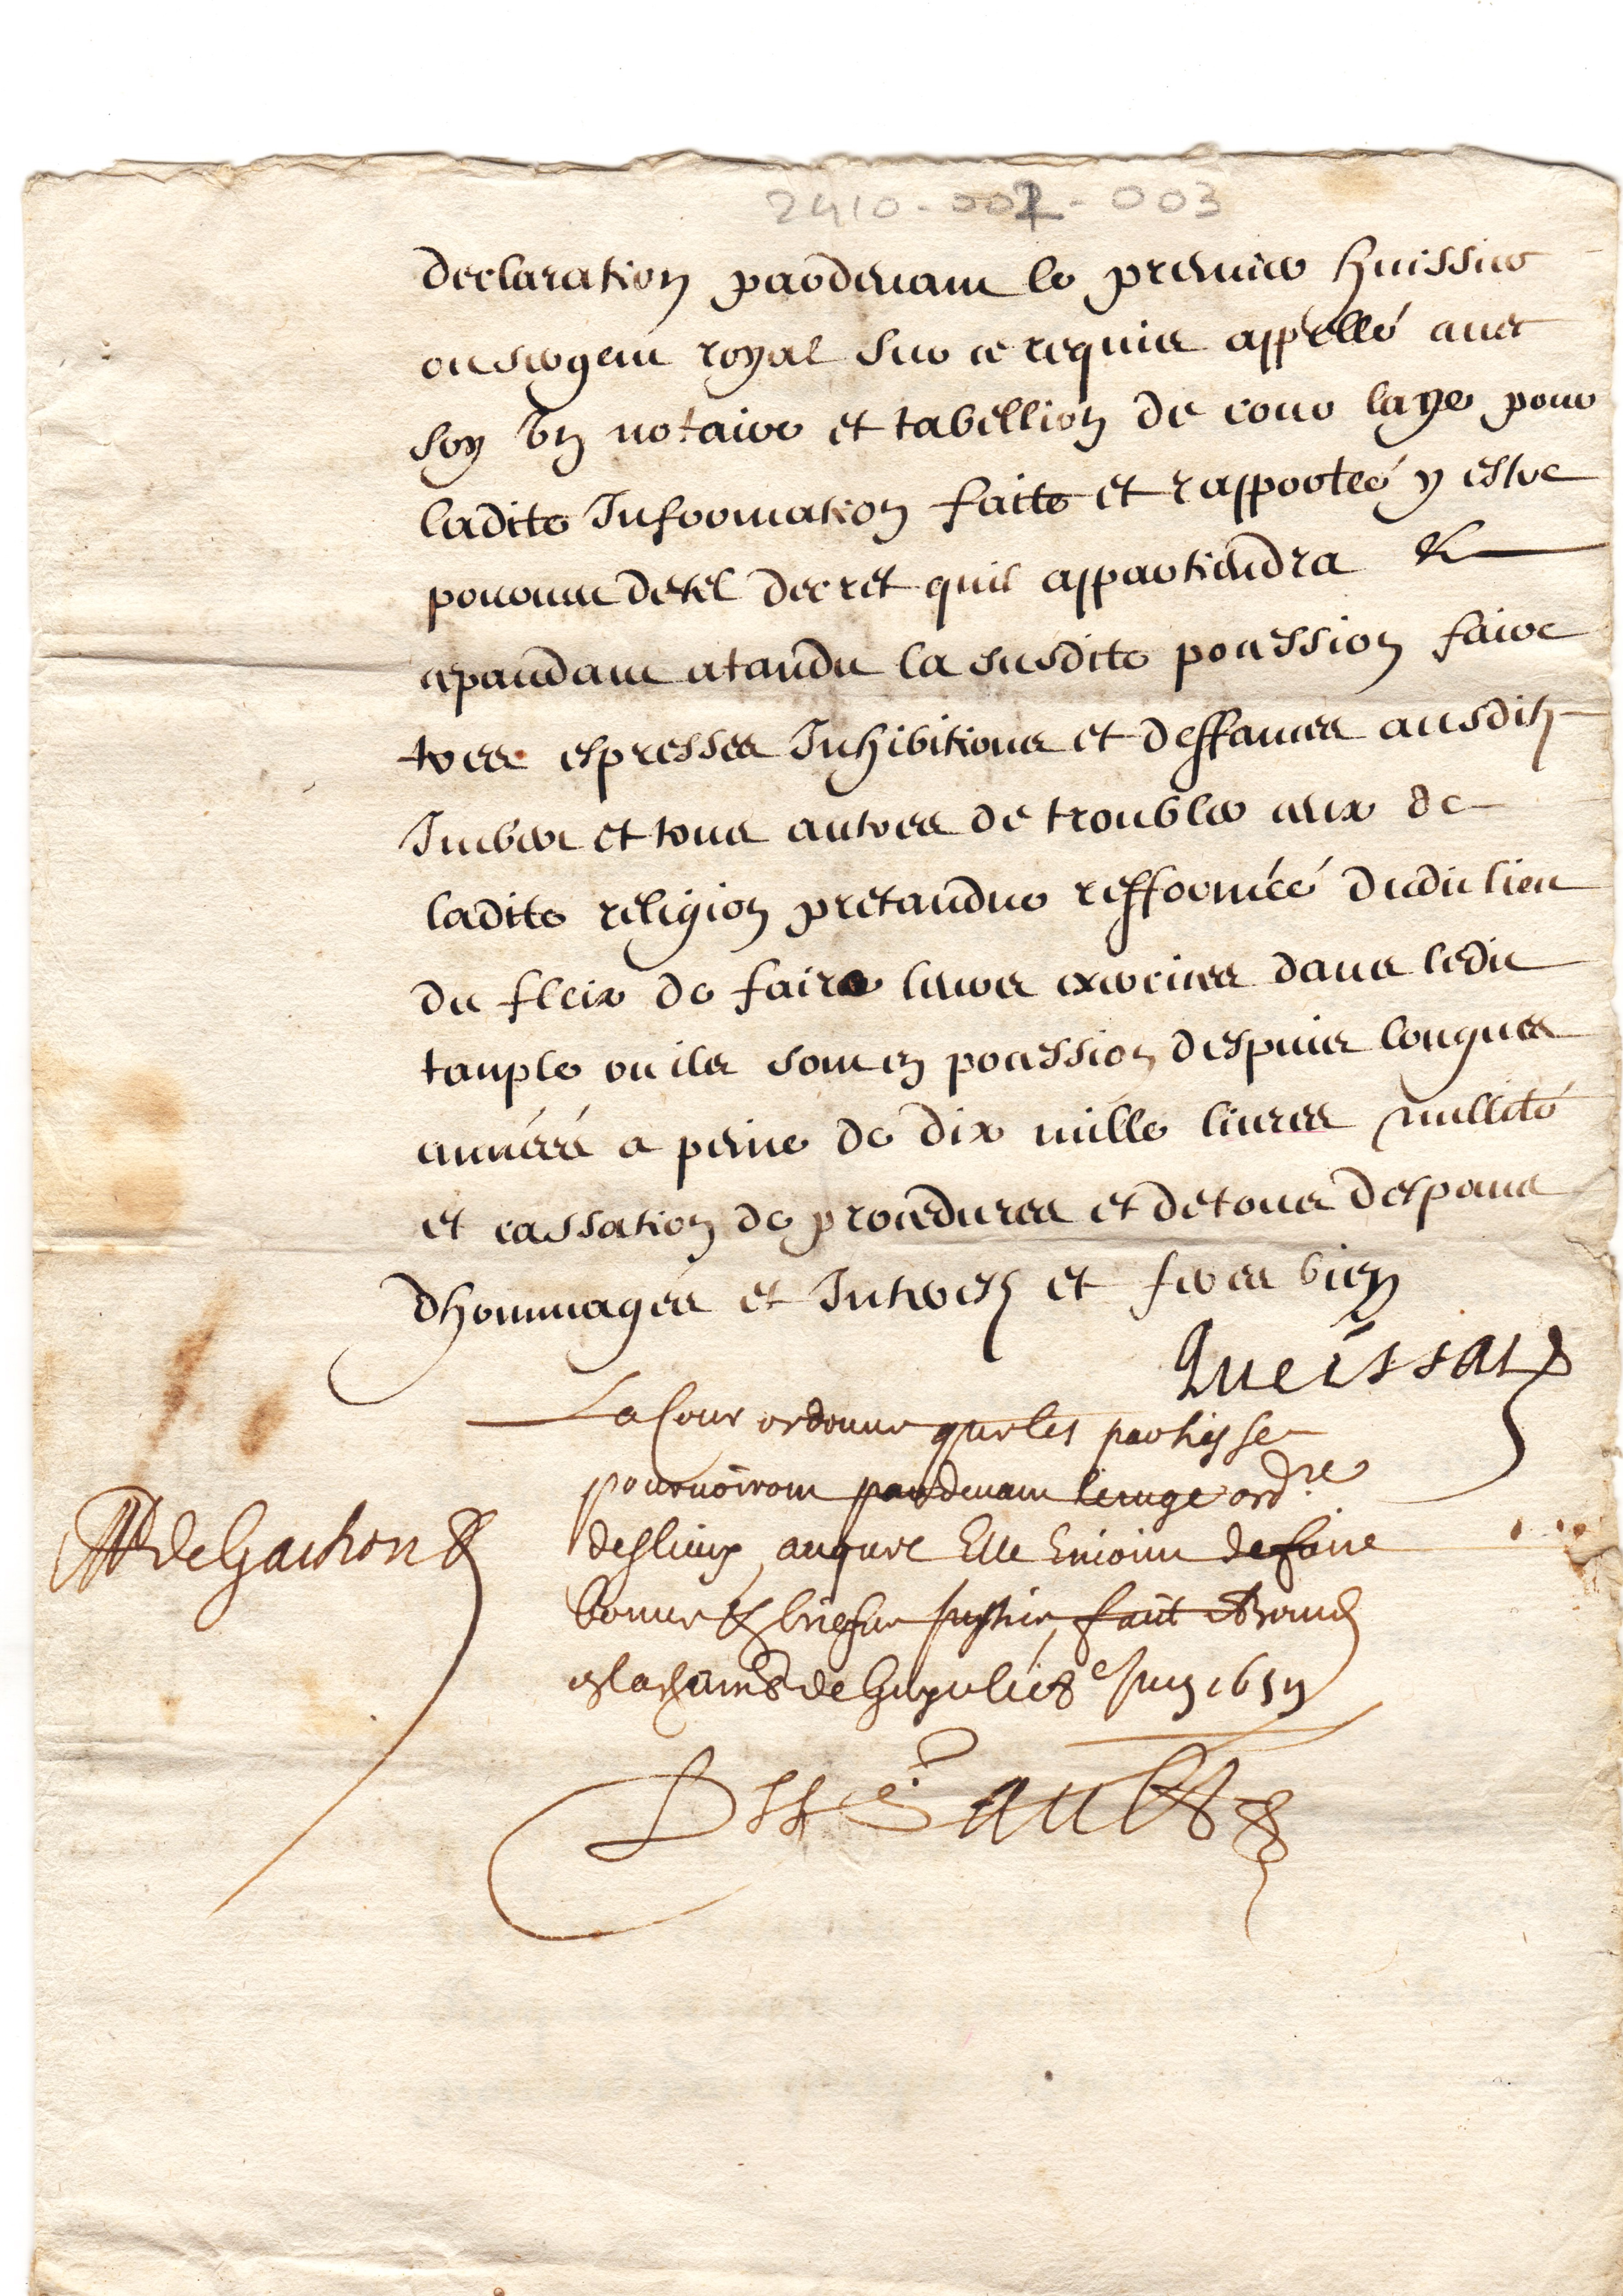 2410-007-003
declaration pardevant le premier huissier
ou sergent royal sur ce requis appellé avec
soy un notaire et tabellion de cour laye pour
ladite Information faite et rapportée y estre
pourveu de tel decret quil appartiendra &
cepandant atandu la susdite pocession faire
tres espresses Inhibitions et deffances ausdits
et tous autres de troubler ceux de
ladite religion pretandue refformée dudit lieu
du fleix de faire leurs exercices dans ledit
tanple ou ils sont en pocession despuis longues
années a peine de dix mille livres nullité
et cassation de procedures et de tous despans
dhommages et Interests et feres bien
Queissat
La Cour ordonne que les parties se
pourvoiront pardevant le iuge ordre
des lieux, auquel Elle Enioint de faire
bonne & briefve Justice, fait
de Juin 165